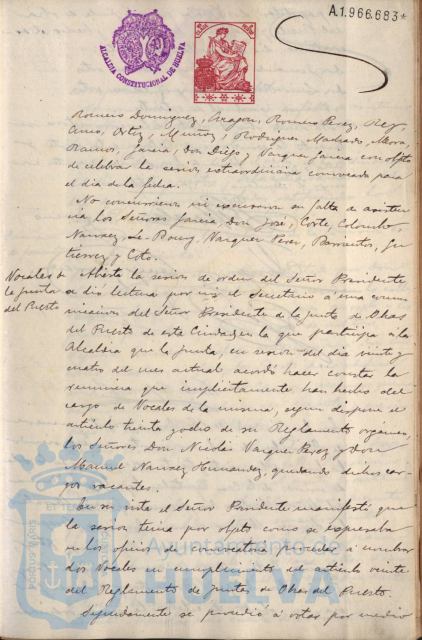 A.1.966.683*
ALCALDIA CONSTITUCIONAL DE HUELVA
Romero Dominguez, Aragon, Romero Perez, Rey,
Cano, Ortiz, Muñoz, Rodriguez Machado, Mora,
Ramos, Garcia, Don Diego y Vazquez Garcia con objeto
de celebrar la sesion extraordinaria convocada para
el dia de la fecha.
No concurrieron ni escusaron su falta de asisten
cia los Señores Garcia, Don José, Corte, Colombo,
Narvaez, Le-Bourg, Vazquez Perez, Barrientos, Gu
tierrez y Coto.
Vocales de
la Junta
del Puerto
Abierta la sesion de orden del Señor Presidente
se dió lectura por mi el Secretario á una comu
nicacion del Señor Presidente de la Junta de Obras
del Puerto de esta Ciudad en la que participa á la
Alcaldia que la Junta, en sesion del dia veinte y
cuatro del mes actual acordó hacer constar la
renuncia que implicitamente han hecho del
cargo de Vocales de la misma, segun dispone el
artículo treinta y ocho de su Reglamento orgánico,
los Señores Don Nicolás Vazquez Perez y Don
Manuel Narvaez Hernandez, quedando dichos car
gos vacantes.
En su vista el Señor Presidente manifestó que
la sesion tenia por objeto como se espresaba
en los oficios de convocatoria proceder á nombrar
dos Vocales en cumplimiento del artículo veinte
del Reglamento de Juntas de Obras del Puerto.
Seguidamente se procedió á votar por medio
PORTUS MARIS
ET TERRAE
Ayuntamiento de
HUELVA